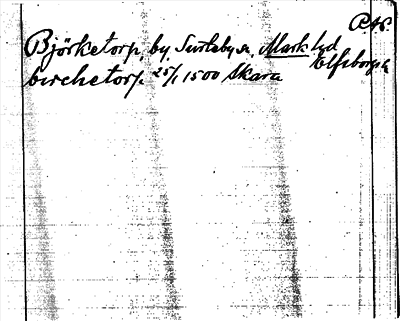 Björketorp, by, Surteby sn, Mark hd
Elfsborgs l.
birchetorp 25/1 1500 Skara